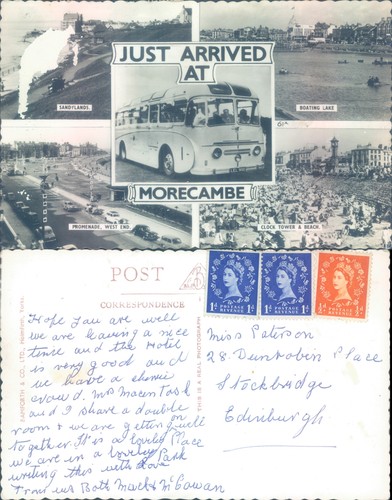 JUST ARRIVED
AT
MORECAMBE
SANDYLANDS.
BOATING LAKE
PROMENADE, WEST END.
CLOCK TOWER & BEACH.
POST
CORRESPONDENCE
BAMFORTH & CO., LTD., HOLMFIRTH, Yorks.
THIS IS A REAL PHOTOGRAPH
POSTAGE REVENUE
1d 1d
POSTAGE REVENUE
1d 1d
POSTAGE REVENUE
½d ½d
Hope you are well
we are having a nice
time and the Hotel
is very good and
we have a
crowd. Mrs
and I share a double
room & we are getting on well
together. It is a Lovely Place
we are in a lovely Park
writing this with Love
From us Both McCowan
Miss Paterson
28. Dunrobin Place
Stockbridge
Edinburgh